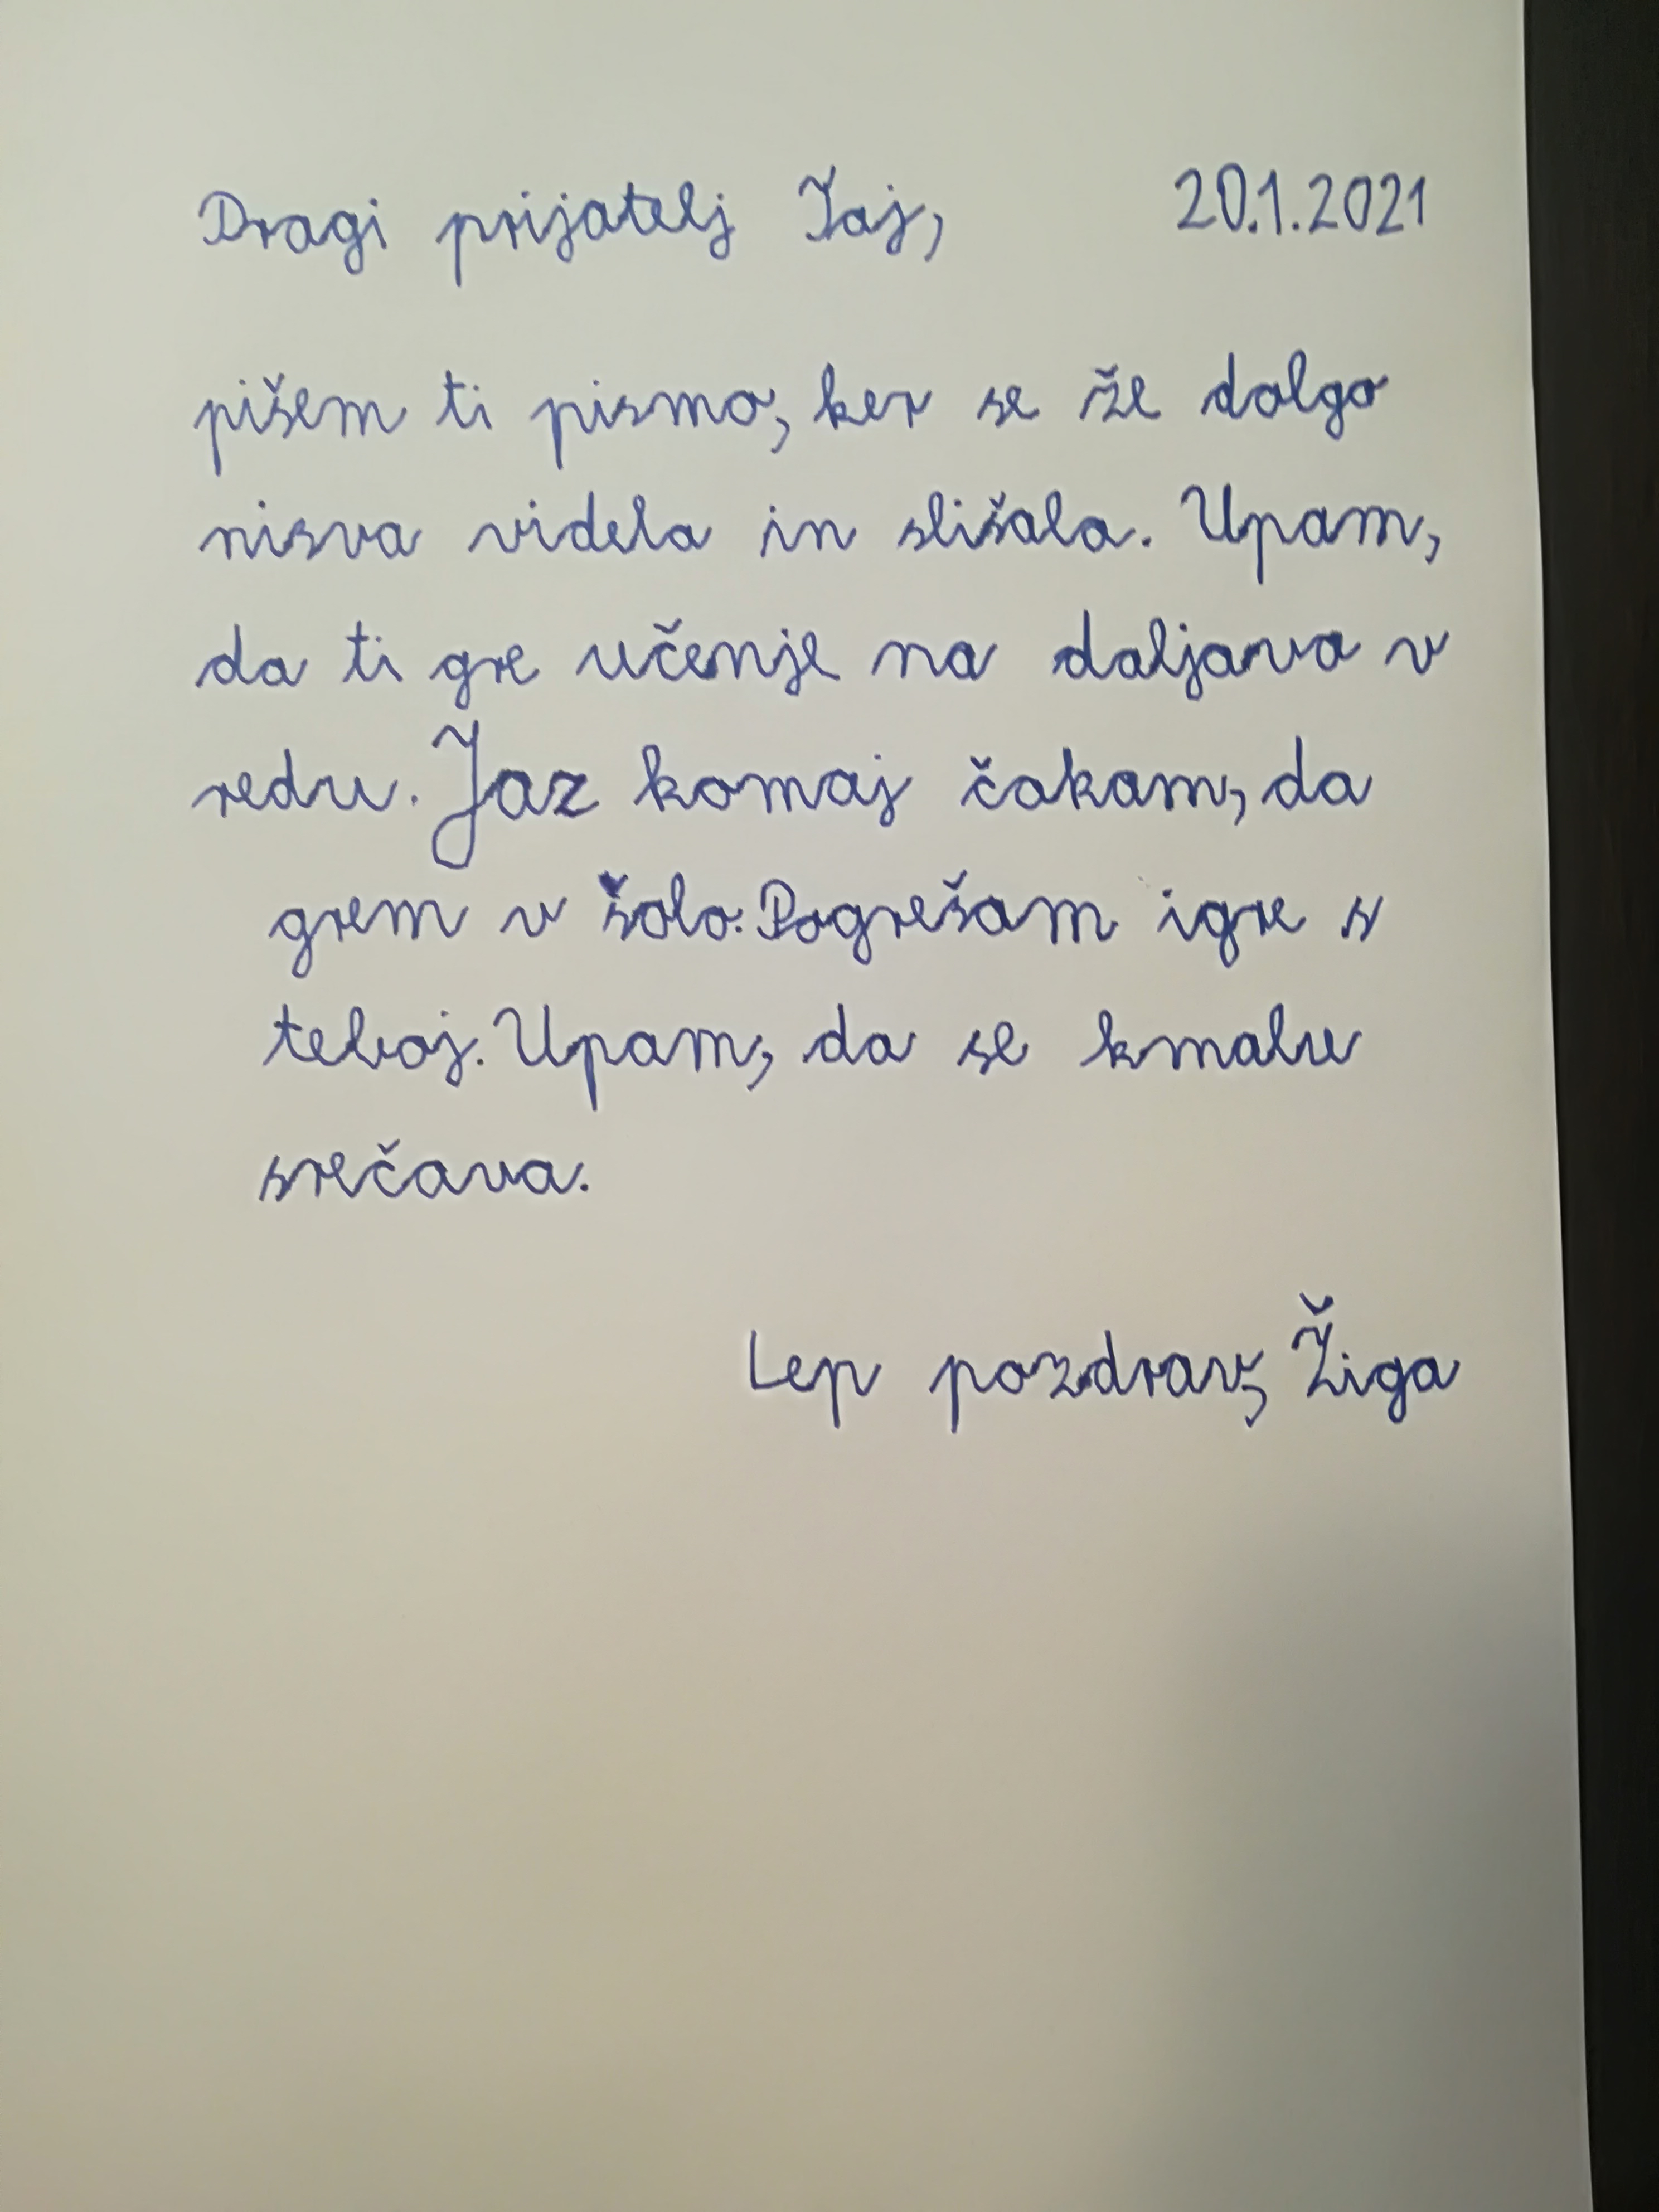 Dragi prijatelj Taj, 20.1.2021
pišem ti pismo, ker se že dolgo
nisva videla in slišala. Upam,
da ti gre učenje na daljava v
redu. Jaz komaj čakam, da
grem v šolo. Pogrešam igre s
teboj. Upam, da se kmalu
srečava.
Lep pozdrav, Žiga